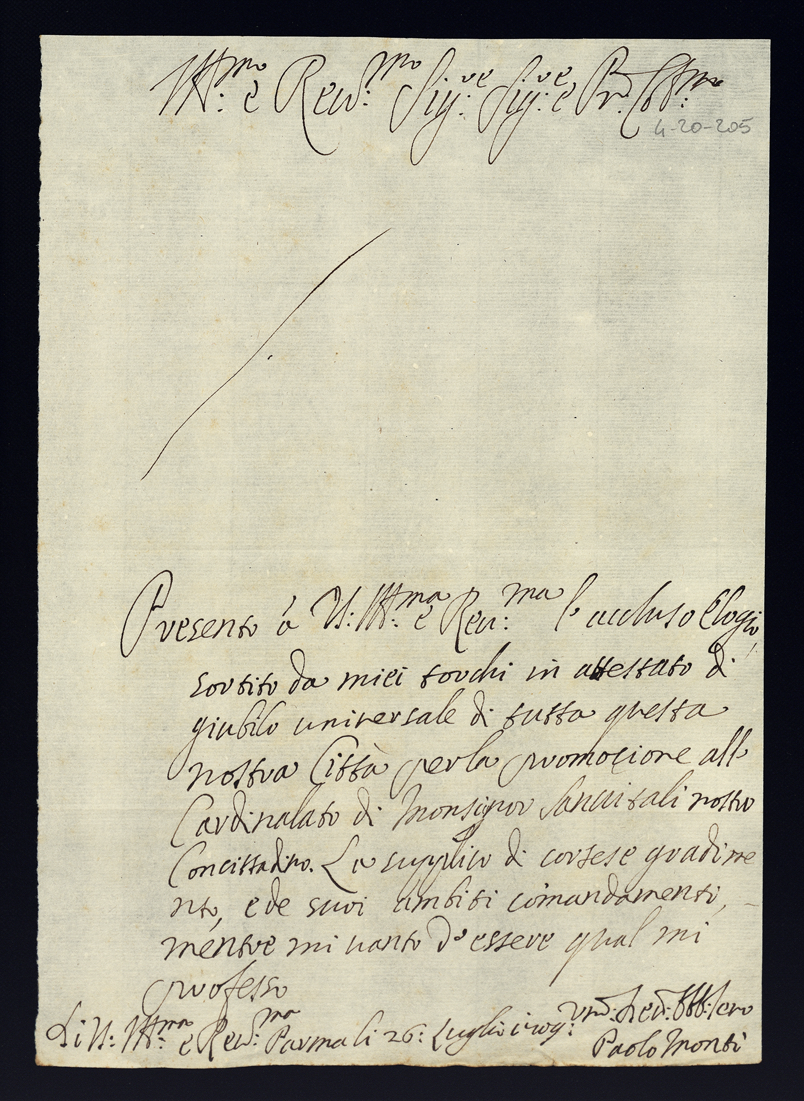 Ill:mo e Rev:mo Sig:re Sig:re e Pr: Col:mo
4-20-205
Presento à V: Ill:ma e Rev:ma l'accluso Elogio
sortito da miei torchi in attestato di
giubilo universale di tutta questa
nostra Città per la promozione all
Cardinalato di Monsignor Sanvitali nostro
Concittadino. La supplico di cortese gradime
nto, e de suoi ambiti comandamenti,
mentre mi vanto d'essere qual mi
professo
Di V: Ill:ma e Rev:ma Parma li 26: Luglio 1709:
Paolo Monti